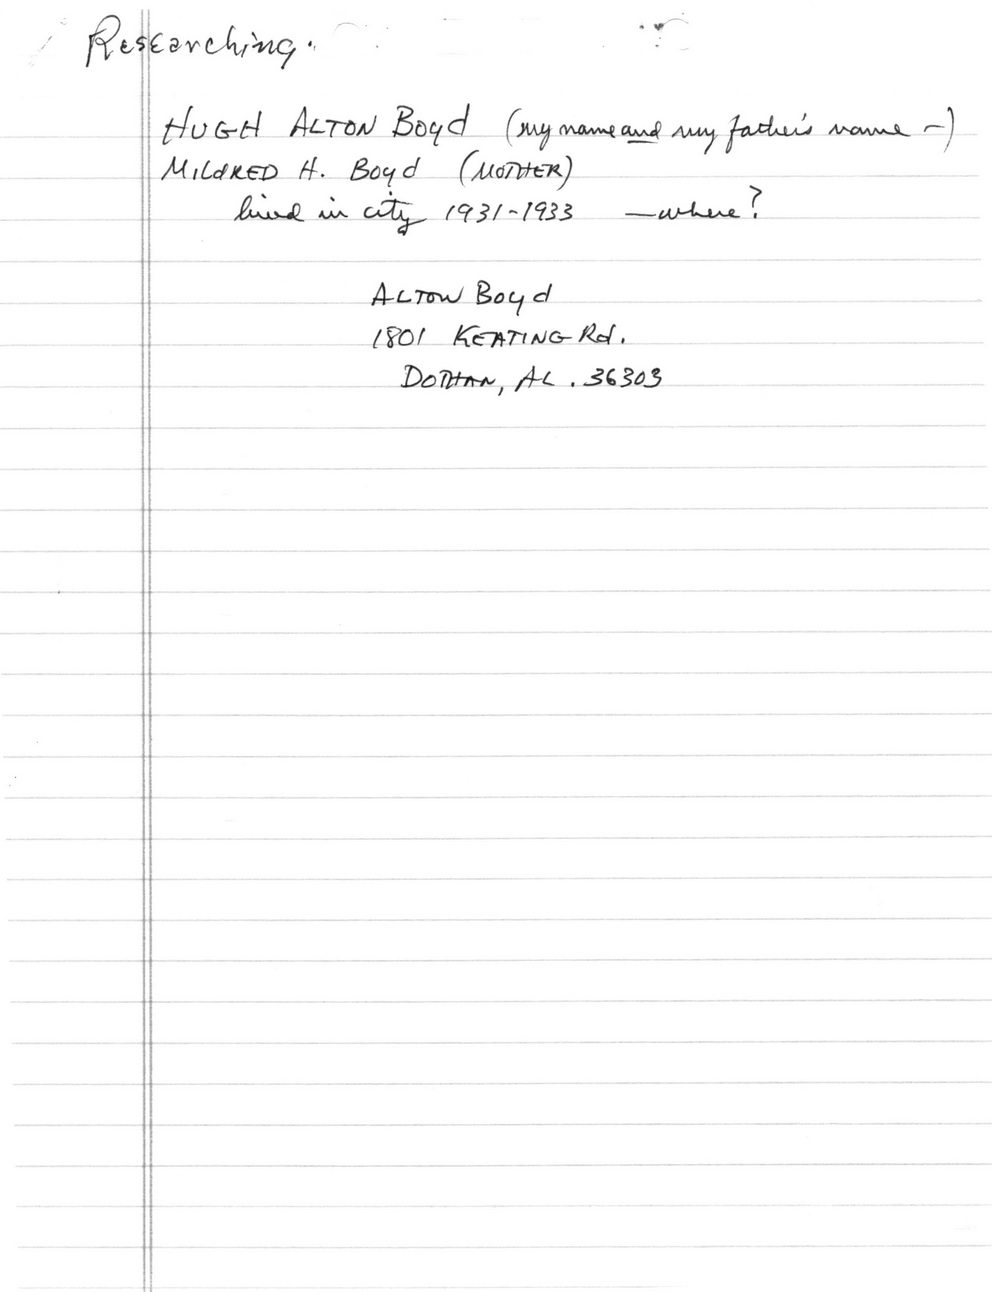 Researching.
HUGH ALTON Boyd (my name and my father's name -)
MILdRED H. Boyd (MOTHER)
lived in city 1931-1933 —where?
ALTON Boyd
1801 KEATING Rd.
DOTHAN, AL. 36303